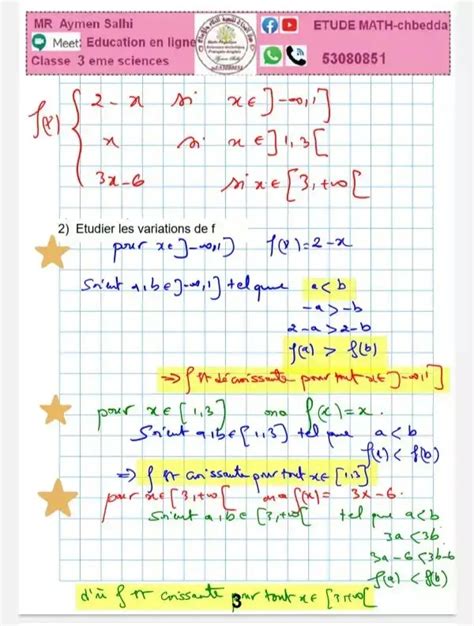 MR Aymen Salhi
Meet: Education en ligne
Classe 3 eme sciences
ETUDE MATH-chbedda
53080851
f(x) { 2 - x si x ∈ ]-∞,1]
x si x ∈ ]1,3[
3x-6 si x ∈ [3,+∞[
2) Etudier les variations de f
pour x ∈ ]-∞,1] f(x) = 2 - x
Soient a,b ∈ ]-∞,1] tel que a < b
-a > -b
2-a > 2-b
f(a) > f(b)
⇒ f est décroissante pour tout x ∈ ]-∞,1]
pour x ∈ [1,3] on a f(x) = x.
Soient a,b ∈ [1,3] tel que a < b
f(a) < f(b)
⇒ f est croissante pour tout x ∈ [1,3]
pour x ∈ [3,+∞[ on a f(x) = 3x-6.
Soient a,b ∈ [3,+∞[ tel que a < b
3a < 3b
3a-6 < 3b-6
f(a) < f(b)
d'où f est croissante pour tout x ∈ [3,+∞[
3